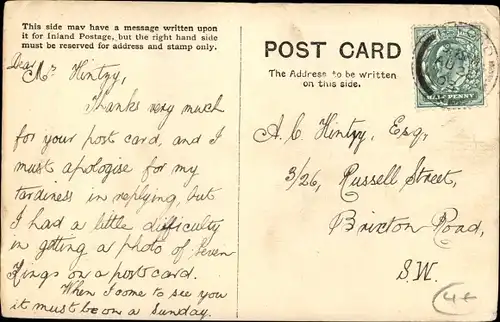 This side may have a message written upon
it for Inland Postage, but the right hand side
must be reserved for address and stamp only.
Dear Mr Hintzy,
Thanks very much
for your post card, and I
must apologise for my
tardiness in replying, but
I had a little difficulty
in getting a photo of Seven
Kings on a post card.
When I come to see you
it must be on a Sunday.
POST CARD
The Address to be written
on this side.
HALF PENNY
A. C. Hintzy, Esq,
3/26, Russell Street,
Brixton Road,
S.W.
4